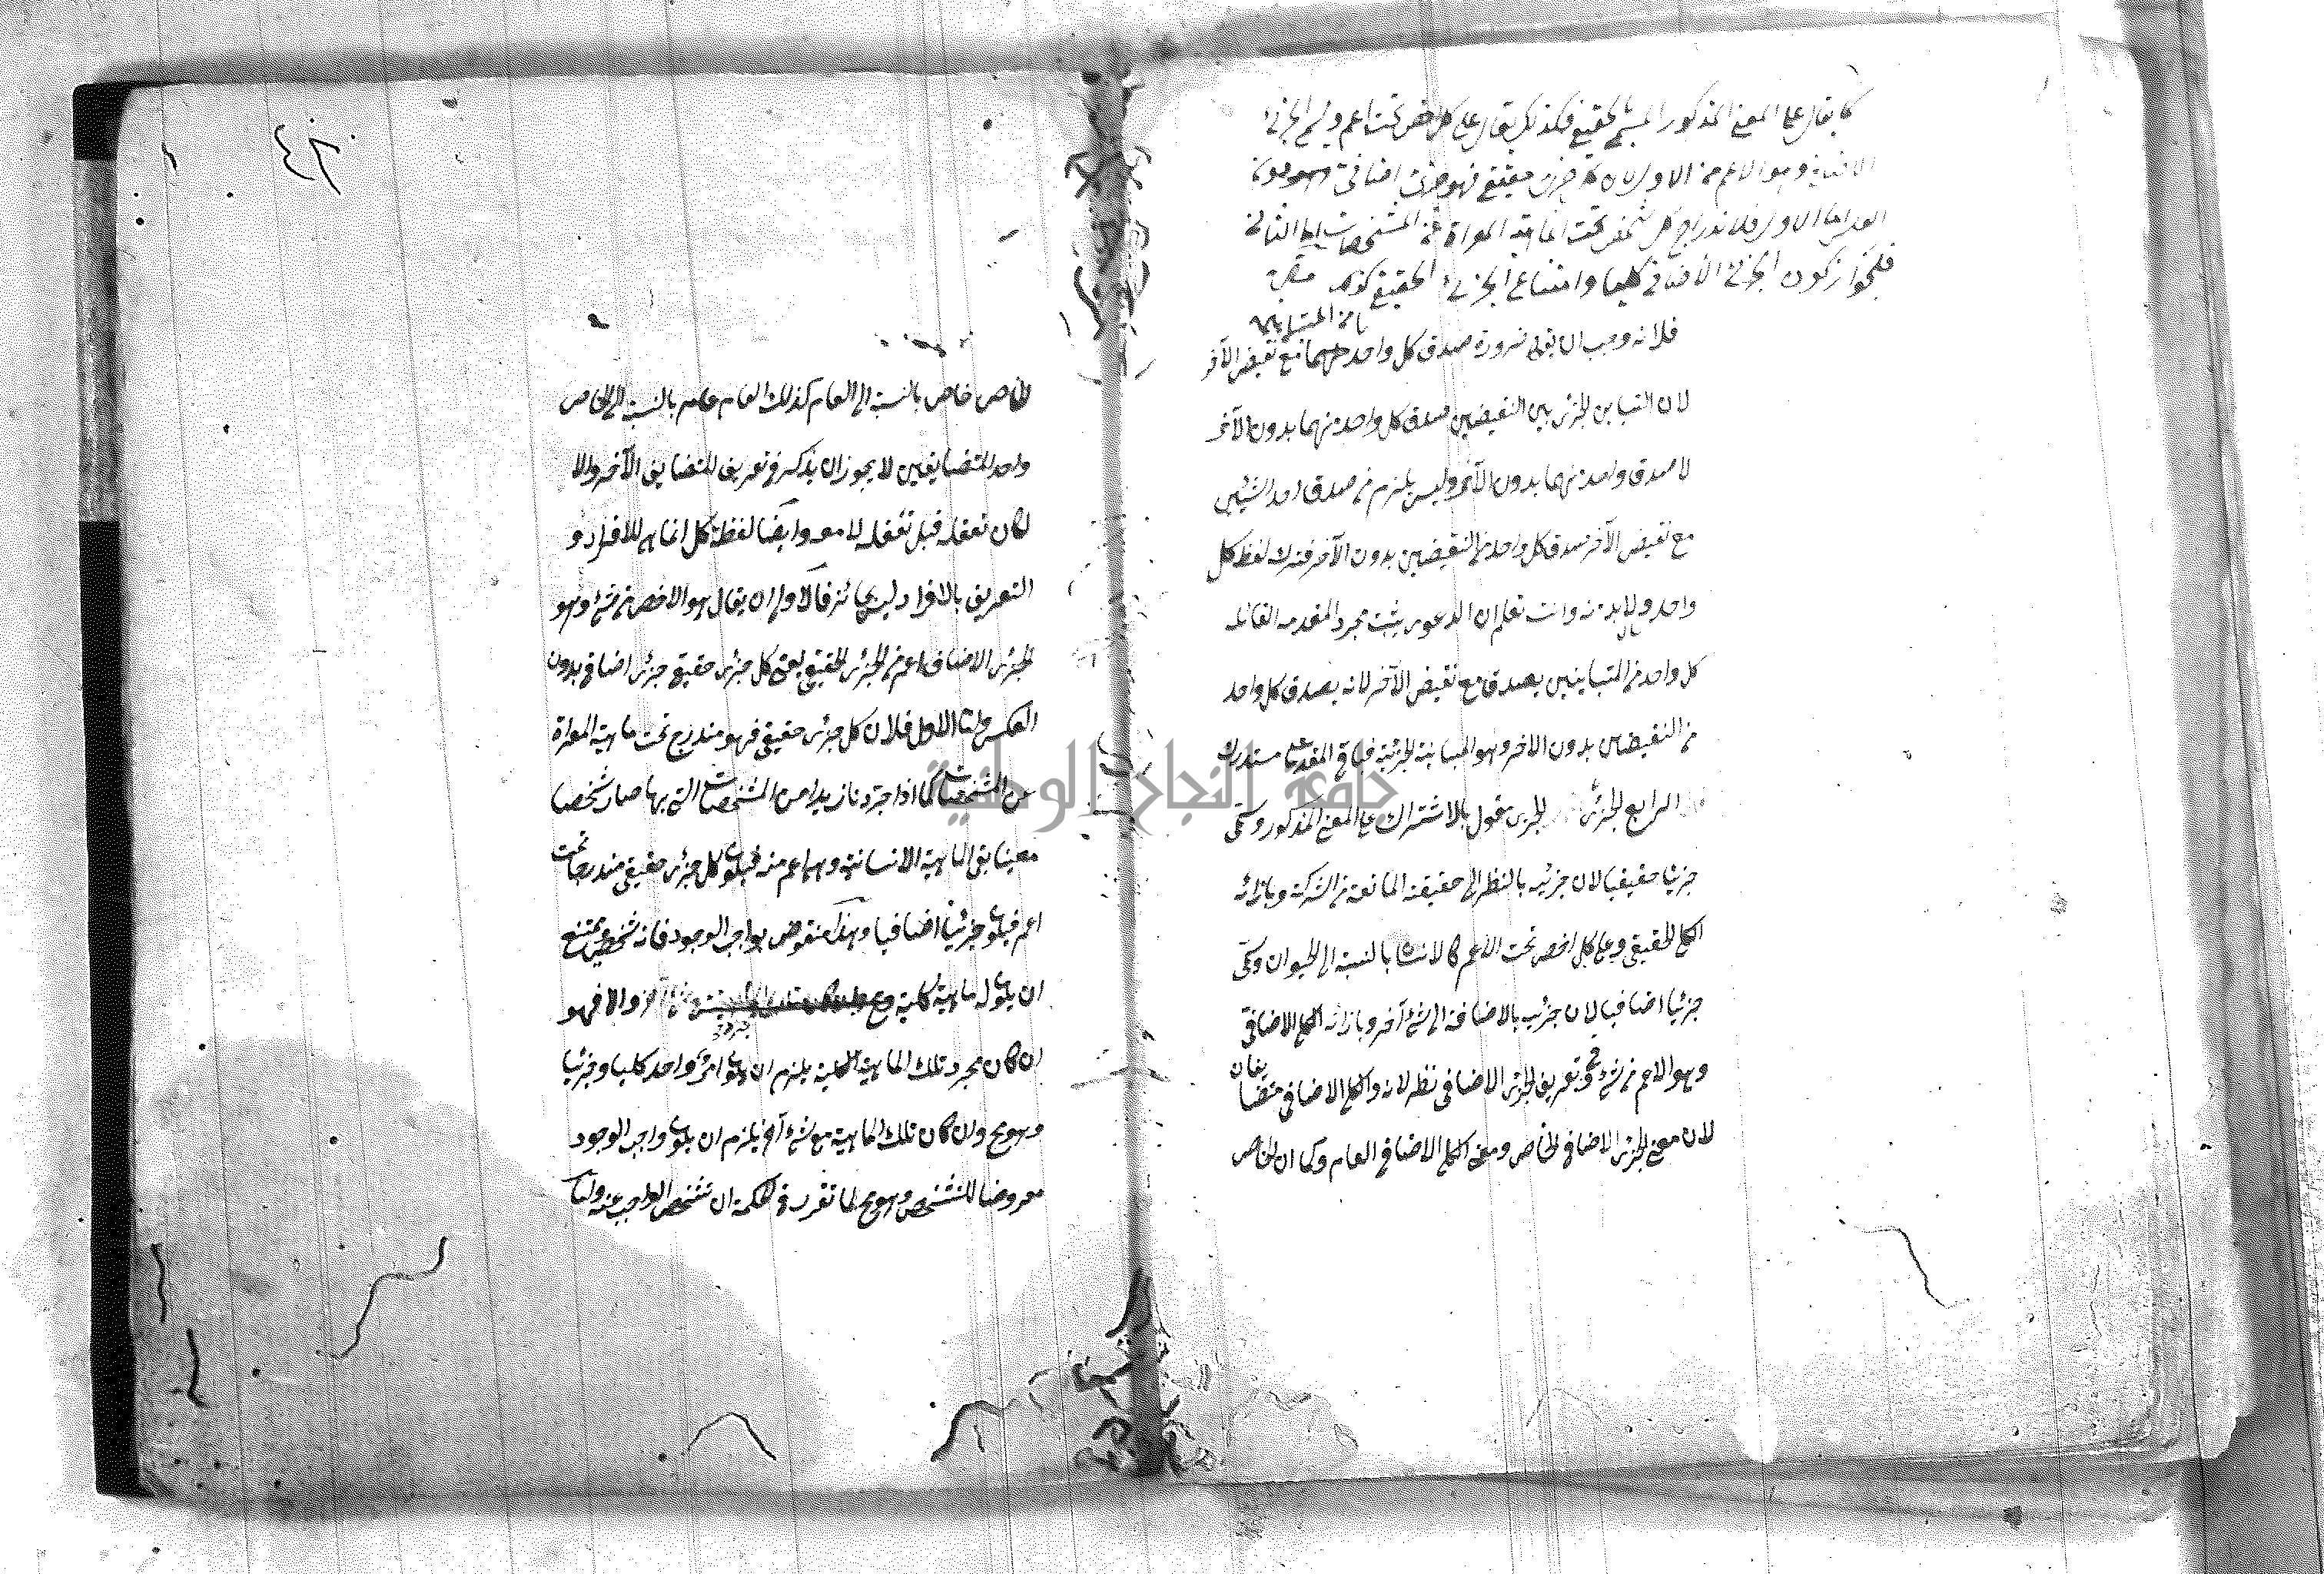 كما يقال على المعنى المذكور المسمى بالحقيقي فكذلك يقال على كل اخص تحت اعم ويسمى الجزئى
الاضافى وهو الاعم من الاول لان كل جزئى حقيقى فهو جزئى اضافى دون
العكس اما الاول فلاندراج كل شخص تحت الماهية المعراة عن المشخصات اما الثانى
فلجواز كون الجزئى الاضافى كليا وامتناع الجزئى الحقيقى كونه
من المتباينين
فلانه وجب ان يقول ضرورة صدق كل واحد منهما مع نقيض الآخر
لان التباين الجزئى بين النقيضين صدق كل واحد منهما بدون الآخر
لا صدق واحد منهما بدون الآخر وليس يلزم من صدق احد الشيئين
مع نقيض الآخر صدق كل واحد من النقيضين بدون الآخر فترك لفظ كل
واحد ولا بد منه وانت تعلم ان الدعوى يثبت بمجرد المقدمة القائلة
كل واحد من المتباينين يصدق مع نقيض الآخر لانه يصدق كل واحد
من النقيضين بدون الاخر وهو المباينة الجزئية فباقى المقدمات مستدرك
الرابع الجزئى مقول بالاشتراك على المعنى المذكور وسمى
جزئيا حقيقيا لان جزئيته بالنظر الى حقيقته المانعة من الشركة وبازائه
الكلى الحقيقى وعلى كل اخص تحت الاعم كالانسان بالنسبة الى الحيوان وسمى
جزئيا اضافيا لان جزئيته بالاضافة الى شئ آخر وبازائه الكلى الاضافى
وهو الاعم من شئ وفى تعريف الجزئى الاضافى نظر لانه والكلى الاضافى متضايفان
لان معنى الجزئى الاضافى الخاص ومعنى الكلى الاضافى العام وكما ان الخاص
الخاص خاص بالنسبة الى العام كذلك العام عام بالنسبة الى الخاص
واحد المتضايفين لا يجوز ان يذكر فى تعريف المتضايف الآخر والا
لكان تعقله قبل تعقله لا معه وايضا لفظة كل انما هى للافراد و
التعريف بالافراد ليس بجائز فالاولى ان يقال هو الاخص من شئ وهو
الجزئى الاضافى اعم من الجزئى الحقيقى يعنى كل جزئى حقيقى جزئى اضافى بدون
العكس اما الاول فلان كل جزئى حقيقى فهو مندرج تحت ماهية المعراة
عن المشخصات كما اذا جردنا زيدا من المشخصات التى بها صار شخصا
معينا بقى الماهية الانسانية وهى اعم منه فيكون كل جزئى حقيقى مندرجا تحت
اعم فيكون جزئيا اضافيا وهذا منقوض بواجب الوجود فانه شخص يمتنع
ان يكون له ماهية كلية والا فهو
ان كان مجرد تلك الماهية الكلية يلزم ان يكون امر واحد كليا وجزئيا
وهو مح وان كان تلك الماهية مع شئ آخر يلزم ان يكون واجب الوجود
معروضا للتشخص وهو مح لما تقرر فى الحكمة ان تشخص الواجب عينه